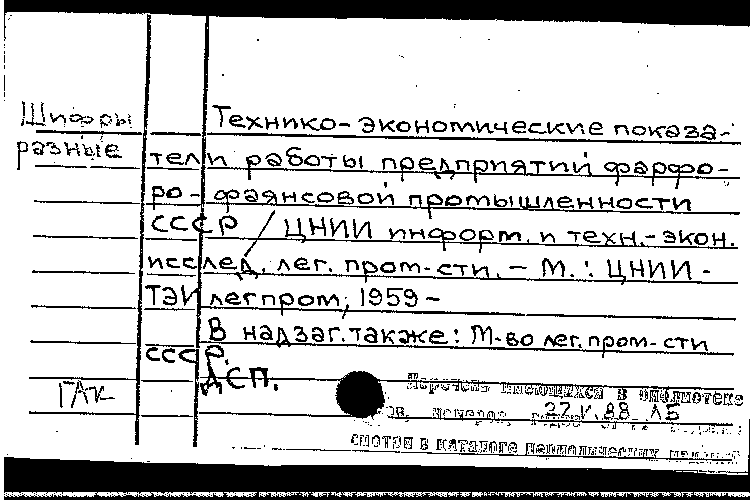 Шифры
разные
Технико-экономические показа-
тели работы предприятий фарфо-
ро-фаянсовой промышленности
СССР / ЦНИИ информ. и техн.-экон.
исслед. лег. пром-сти. – М.: ЦНИИ-
ТЭИлегпром, 1959 –
В надзаг. также: М-во лег. пром-сти
СССР.
ДСП.
ГАК
Перечень имеющихся в библиотеке
номеров, 27.V.88 ЛБ
смотри в каталоге периодических изданий